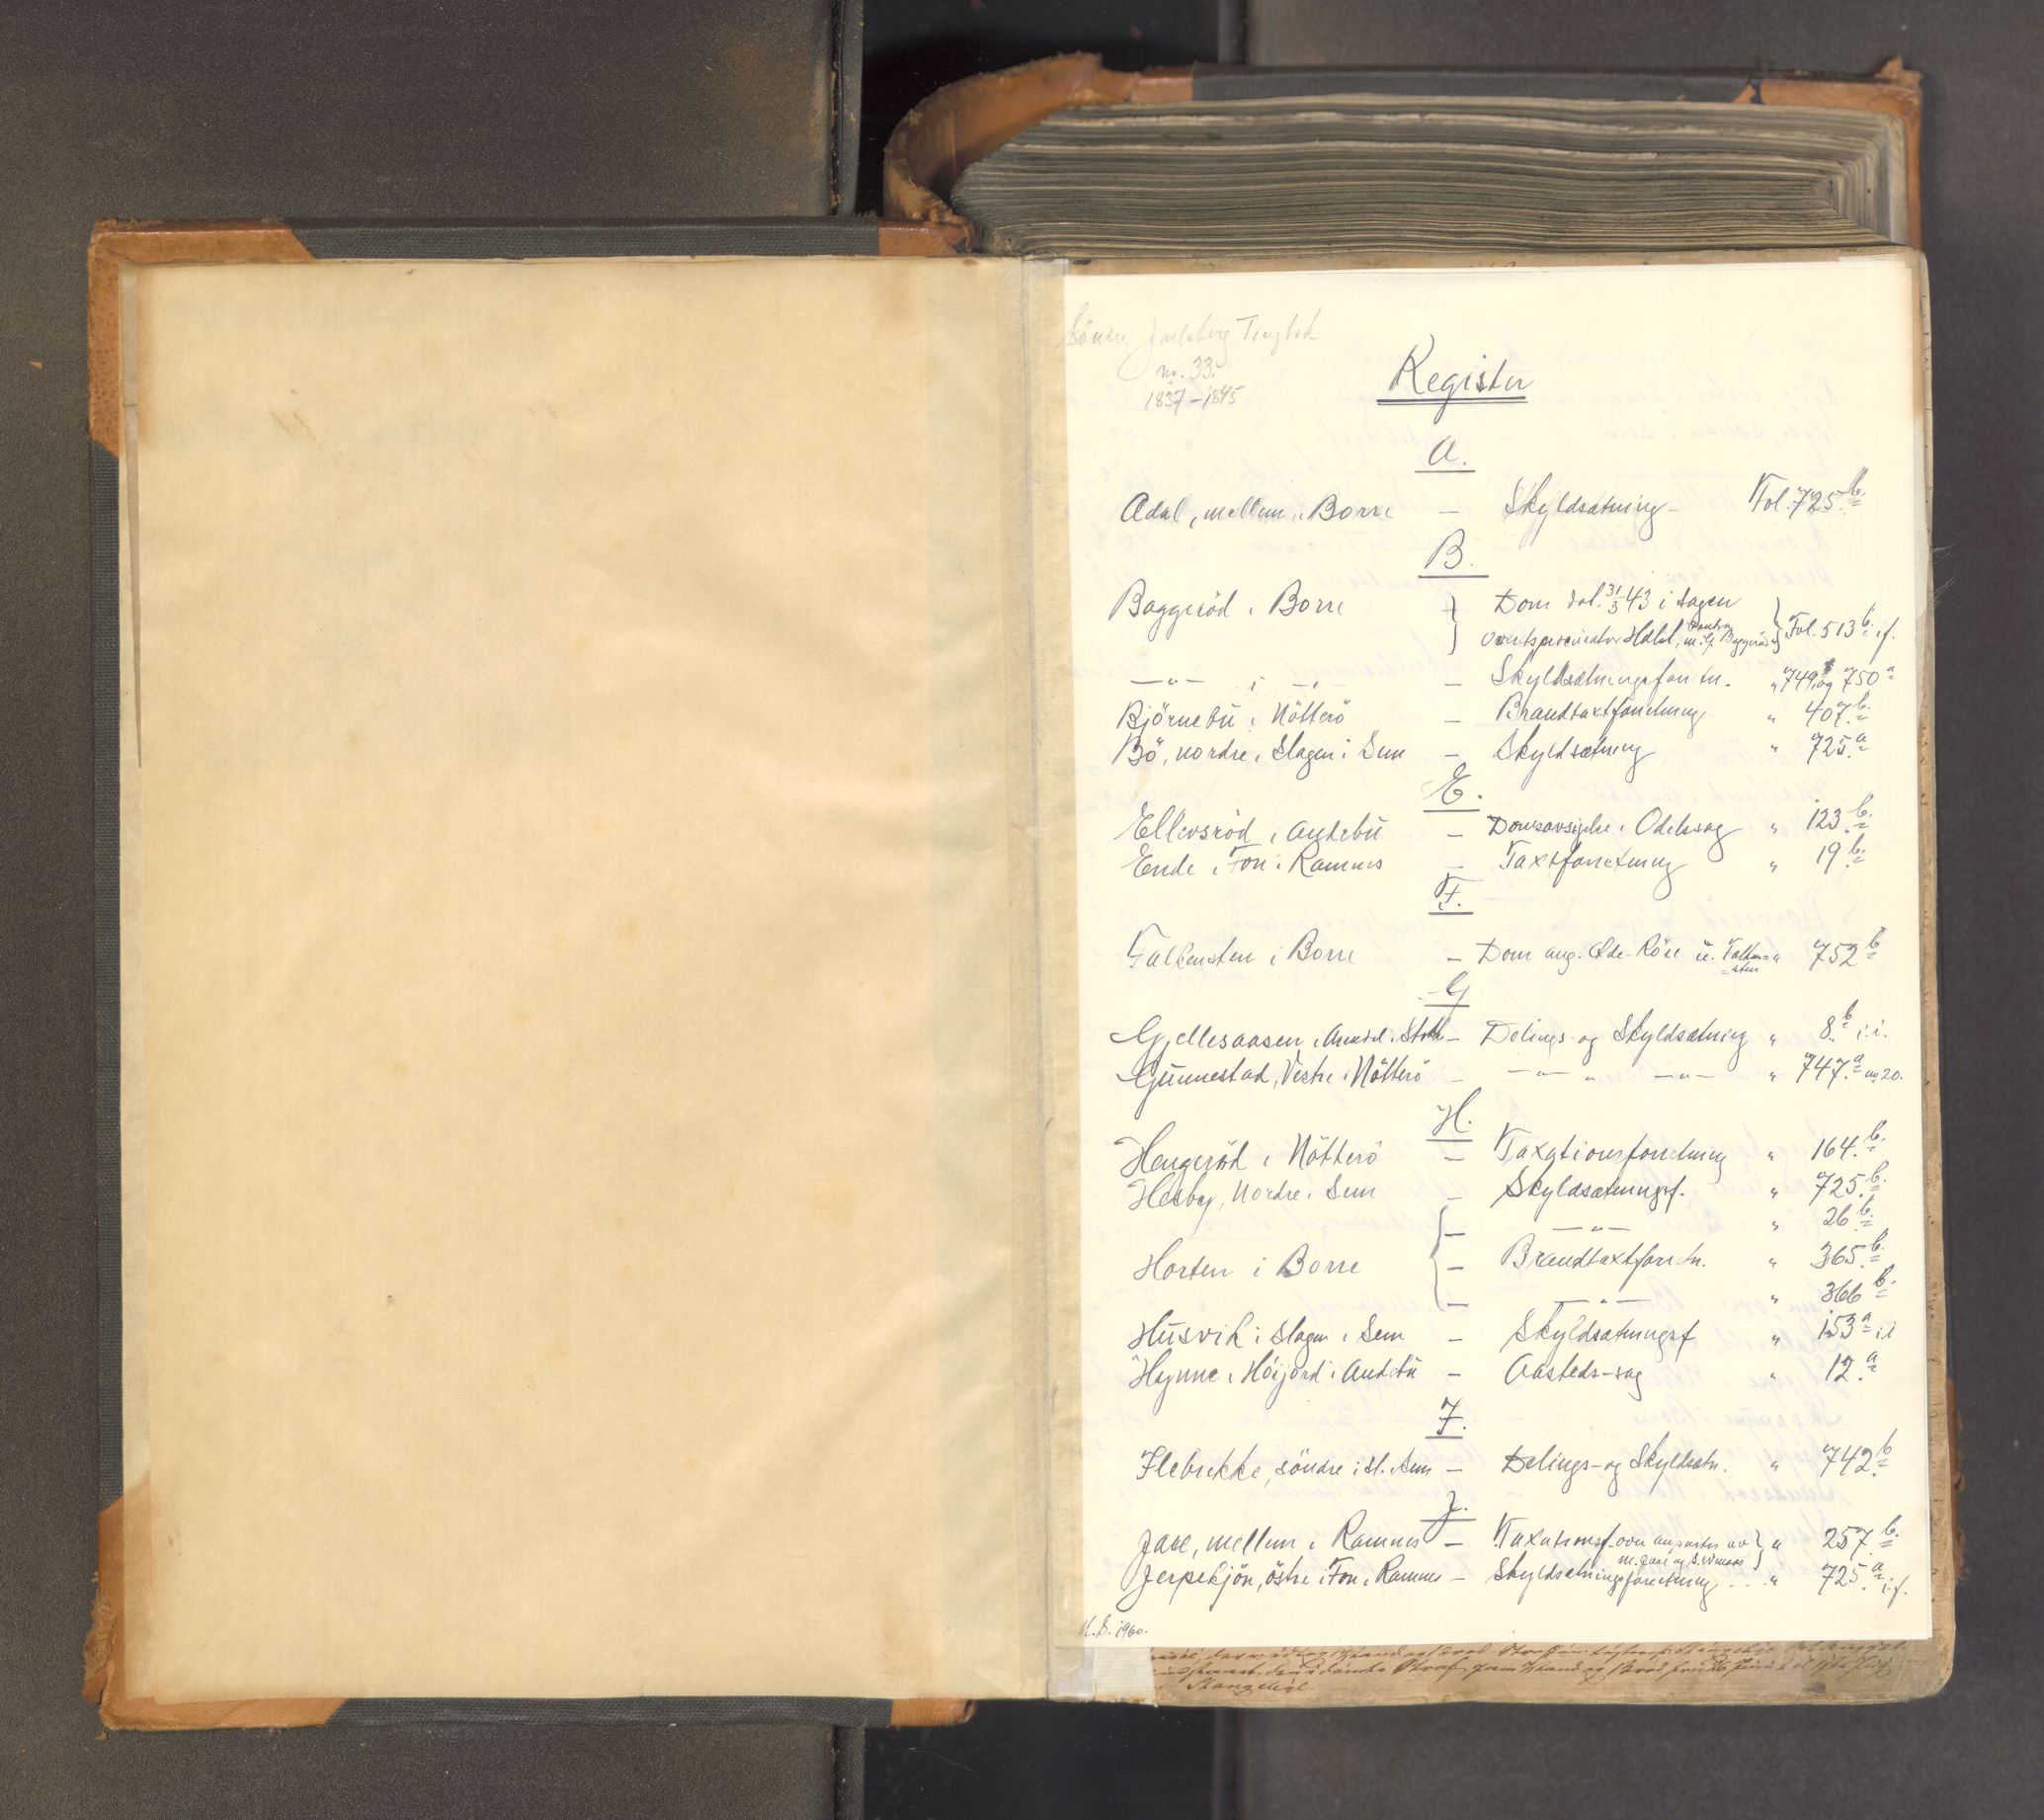 Söndre Jarlsberg Tingbok
no. 33.
1837-1845
Register
A.
Adal, mellem, i Borre — Skyldsætning - Fol. 725 b.
B.
Baggeröd i Borre } Dom dat. 31/3 43 i sagen
Overretsprocurator Hdal, contra m. Gl. Baggeröd } Fol. 513 b. i.f.
—"— i —"— — Skyldsætningsforretn. " 749 b og 750 a
Björnebu i Nötterö — Brandtaxtforretning " 407 b.
Bö, nordre, i Slagen i Sem — Skyldsætning " 725 a
E.
Ellevsröd i Andebu — Domsavsigelse i Odelssag " 123 b.
Ende i Fon i Ramnes — Taxtforretning " 19 b.
F.
Falkensten i Borre — Dom ang. Øde-Röre u. Falken=sten " 752 b
G
Gjellesaasen i Arendal i Stokke — Delings- og Skyldsætning " 8 b i.i.
Gunnestad, Vestre i Nötterö — —"— " —"— " 747 a no 20.
H.
Hengeröd i Nötterö — Taxationsforretning " 164 b.
Hesby, Nordre i Sem — Skyldsætningsf. " 725 b.
{ — —"— " 26 b.
Horten i Borre { — Brandtaxtforretn. " 365 b.
{ — —"— " 366 b.
Husvik i Slagen i Sem — Skyldsætningsf " 153 a i.i
Hynne i Höijord i Andebu — Aasteds-sag " 12 a
I.
Ilebrekke, söndre i Sl. i Sem — Delings- og Skyldsetn. " 742 b
J.
Jare, mellem i Ramnes — Taxationsf. over an parter av m. Jare og S. } " 257 b.
Jerpekjön, östre i Fon i Ramnes — Skyldsætningsforretning - - " 725 a i.f.
N.S. 1960.